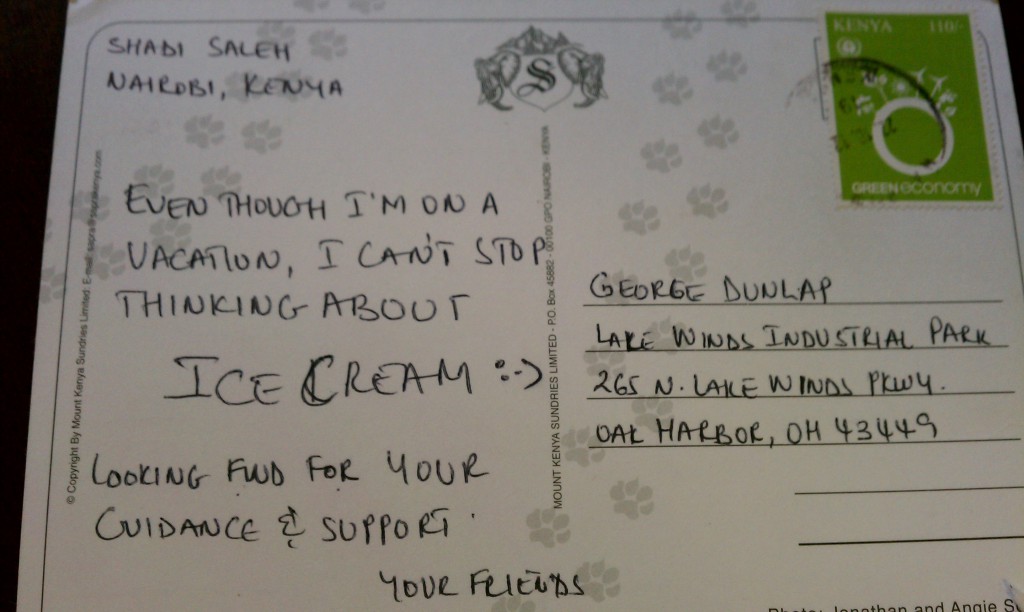 SHADI SALEH
NAIROBI, KENYA
S
KENYA 110/-
GREENeconomy
EVEN THOUGH I'M ON A
VACATION, I CAN'T STOP
THINKING ABOUT
ICE CREAM :-)
LOOKING FWD FOR YOUR
GUIDANCE & SUPPORT.
YOUR FRIENDS
GEORGE DUNLAP
LAKE WINDS INDUSTRIAL PARK
265 N. LAKE WINDS PKWY.
OAK HARBOR, OH 43449
© Copyright By Mount Kenya Sundries Limited: E-mail:
MOUNT KENYA SUNDRIES LIMITED - P.O. Box 45882 - 00100 GPO NAIROBI - KENYA
Photo: Jonathan and Angie S